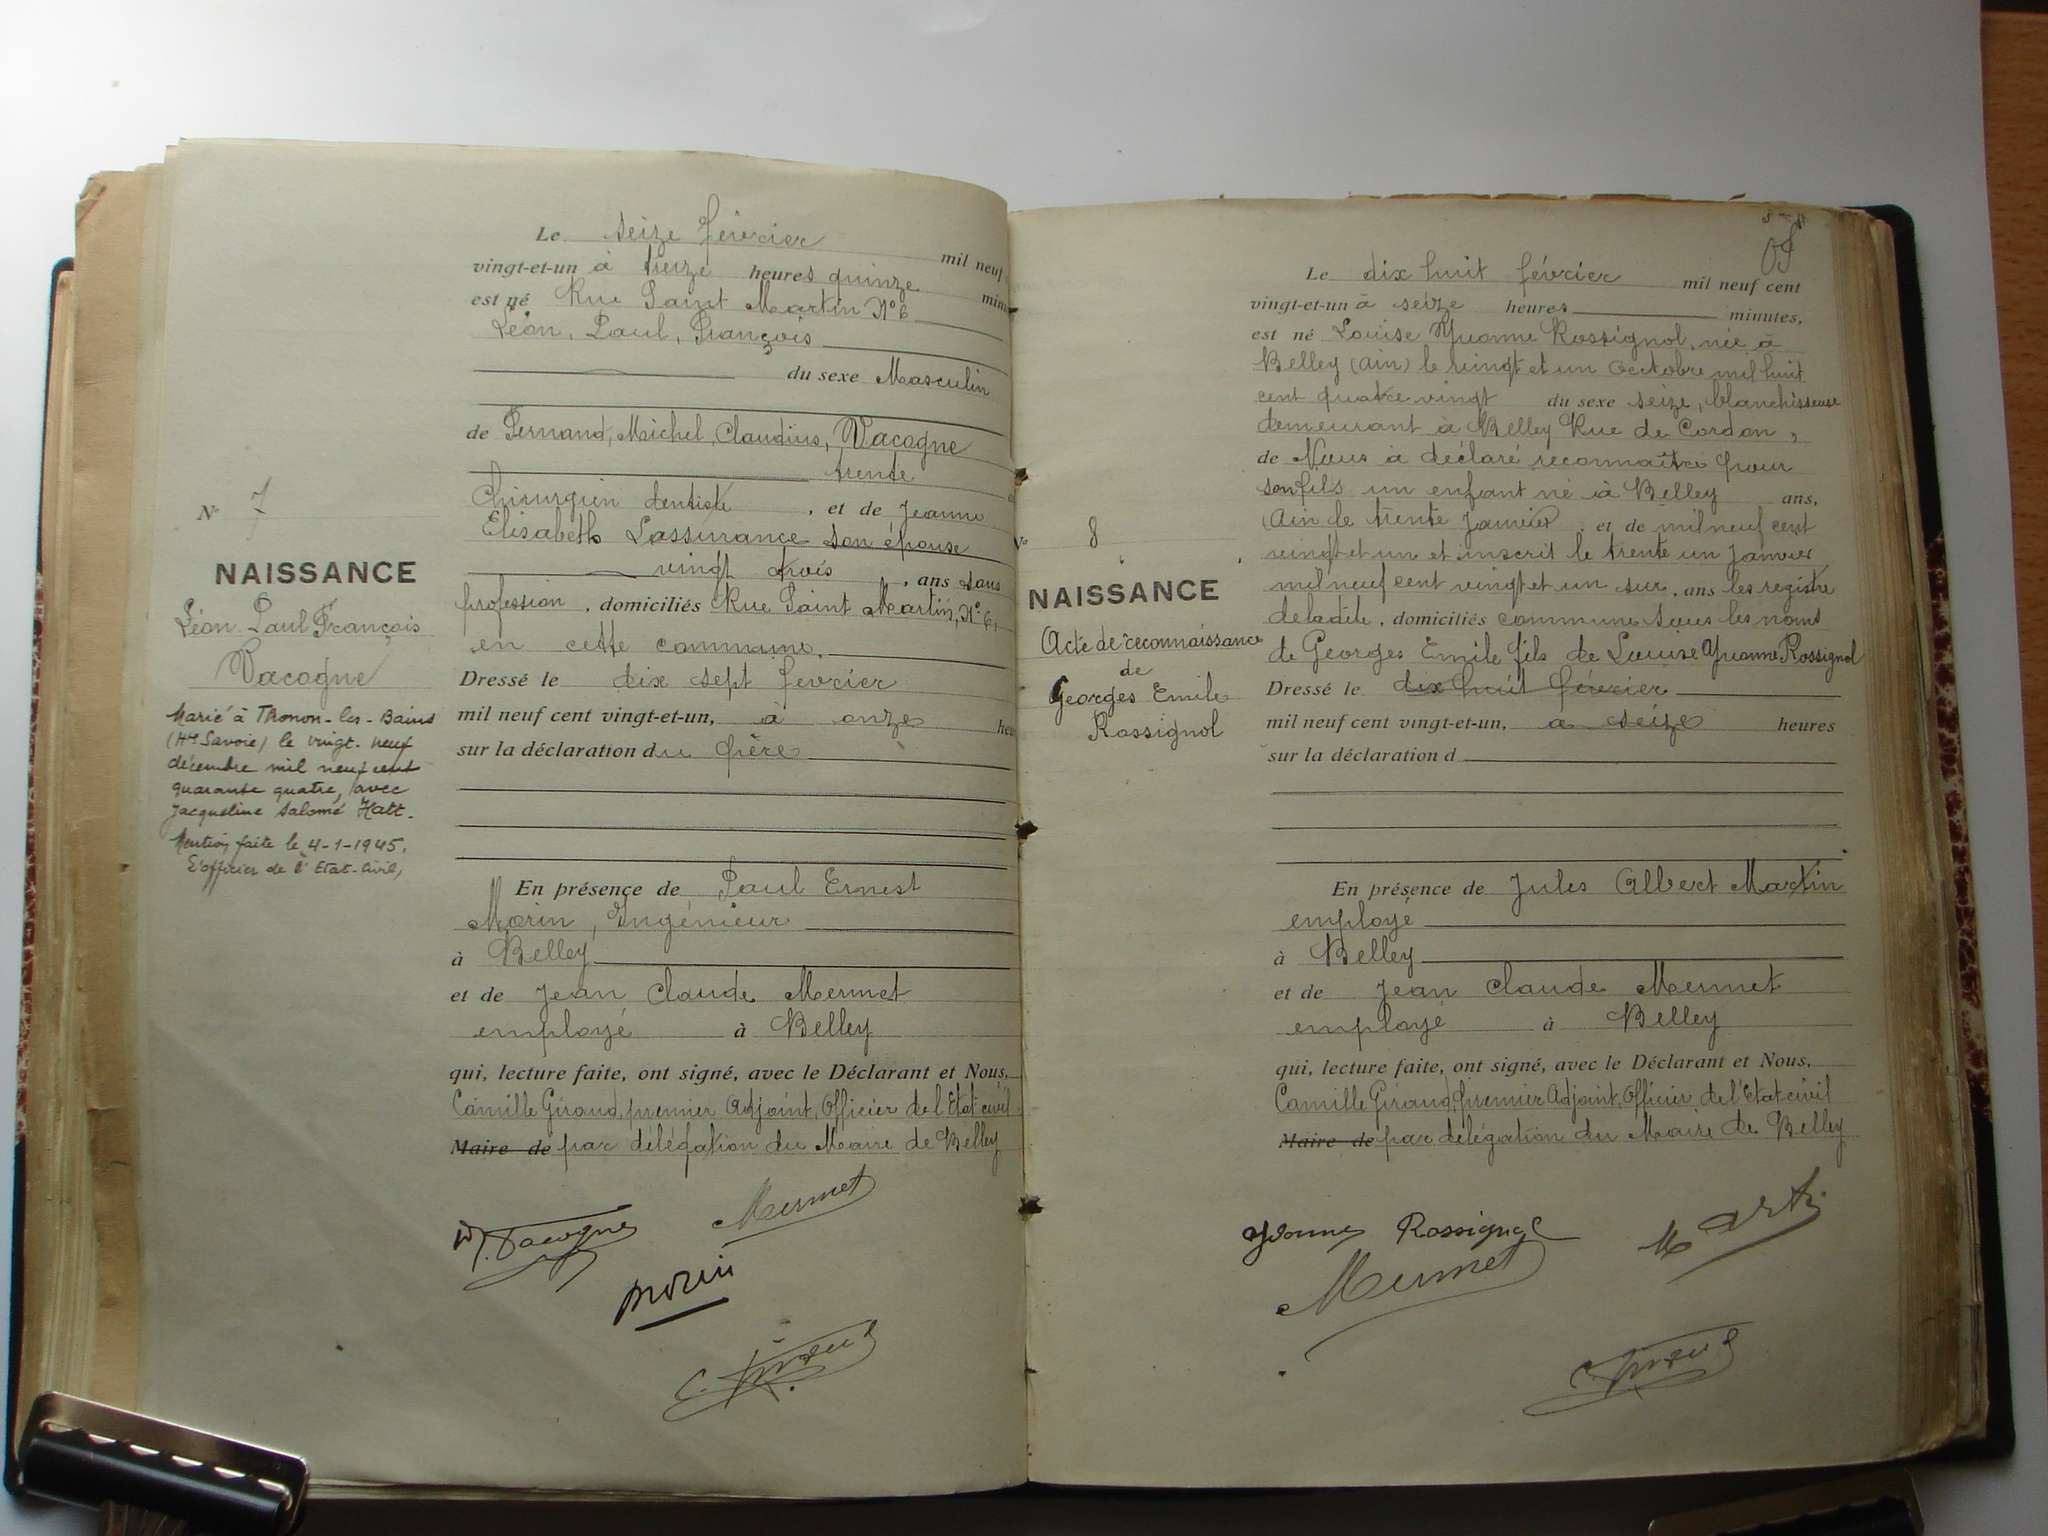 Le seize février mil neuf
vingt-et-un à treize heures quinze
est né Rue Saint Martin N° 6
Léon, Paul, François
du sexe Masculin
de Fernand, Michel, Claudius, Vacogne
trente
Chirurgien dentiste, et de Jeanne
Elisabeth Lassurance son épouse
vingt trois, ans sans
profession, domiciliés Rue Saint Martin, N° 6,
en cette commune.
Dressé le dix sept février
mil neuf cent vingt-et-un, à onze heu
sur la déclaration du père
En présence de Paul Ernest
Morin, Ingénieur
à Belley
et de Jean Claude Mermet
employé à Belley
qui, lecture faite, ont signé, avec le Déclarant et Nous,
Camille Giraud, premier Adjoint, Officier de l'Etat civil
Maire de par délégation du Maire de Belley
Mermet
Vacogne
Morin
N° 7
NAISSANCE
Léon Paul François
Vacogne
Marié à Thonon-les-Bains
(Hte Savoie) le vingt-neuf
décembre mil neuf cent
quarante quatre, avec
Jacqueline Salomé Hatt.
Mention faite le 4-1-1945.
L'officier de l'Etat-Civil,
N° 8
NAISSANCE
Acte de reconnaissance
de
Georges Emile
Rossignol
Le dix huit février mil neuf cent
vingt-et-un à seize heures minutes,
est né Louise Yvonne Rossignol, née à
Belley (Ain) le vingt et un Octobre mil huit
cent quatre vingt du sexe seize, blanchisseuse
demeurant à Belley Rue de Cordon,
de Nous à déclaré reconnaître pour
son fils un enfant né à Belley ans,
(Ain le trente Janvier, et de mil neuf cent
vingt et un et inscrit le trente un Janvier
mil neuf cent vingt et un sur, ans les registre
de ladite, domiciliés commune sous les noms
de Georges Emile fils de Louise Yvonne Rossignol
Dressé le dix huit février
mil neuf cent vingt-et-un, à seize heures
sur la déclaration d
En présence de Jules Albert Martin
employé
à Belley
et de Jean Claude Mermet
employé à Belley
qui, lecture faite, ont signé, avec le Déclarant et Nous,
Camille Giraud, premier Adjoint, Officier de l'Etat civil
Maire de par délégation du Maire de Belley
Yvonne Rossignol
Mermet